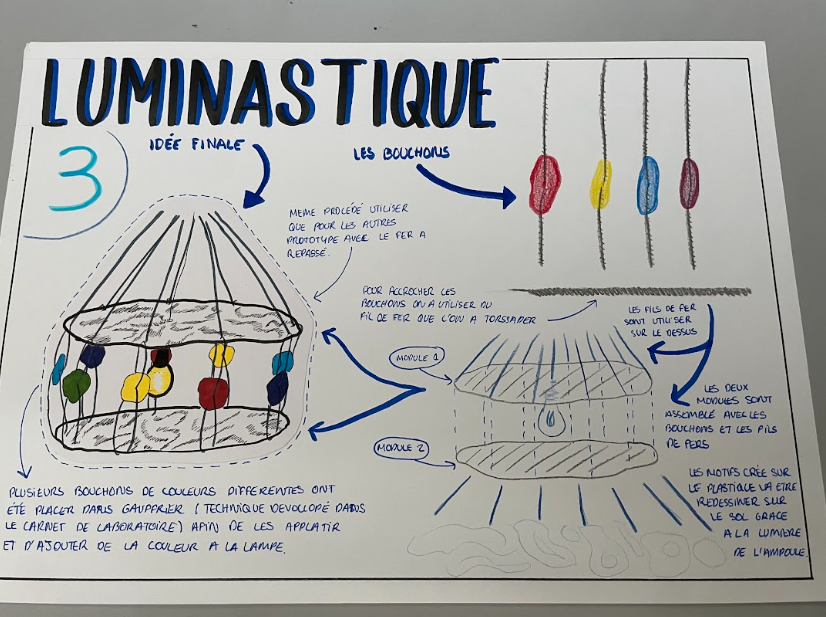 LUMINASTIQUE
3
IDÉE FINALE
LES BOUCHONS
MEME PROCÉDÉ UTILISER
QUE POUR LES AUTRES
PROTOTYPE AVEC LE FER A
REPASSÉ.
POUR ACCROCHER LES
BOUCHONS ON A UTILISER DU
FIL DE FER QUE L'ON A TORSSADER
LES FILS DE FER
SONT UTILISER
SUR LE DESSUS
MODULE 1
LES DEUX
MODULES SONT
ASSEMBLÉ AVEC LES
BOUCHONS ET LES FILS
DE FERS
MODULE 2
LES MOTIFS CRÉE SUR
LE PLASTIQUE VA ETRE
REDESSINER SUR
LE SOL GRACE
A LA LUMIÈRE
DE L'AMPOULE
PLUSIEURS BOUCHONS DE COULEURS DIFFERENTES ONT
ÉTÉ PLACER DANS GAUFFRIER (TECHNIQUE DEVOLLOPÉ DANS
LE CARNET DE LABORATOIRE) AFIN DE LES APPLATIR
ET D'AJOUTER DE LA COULEUR A LA LAMPE.